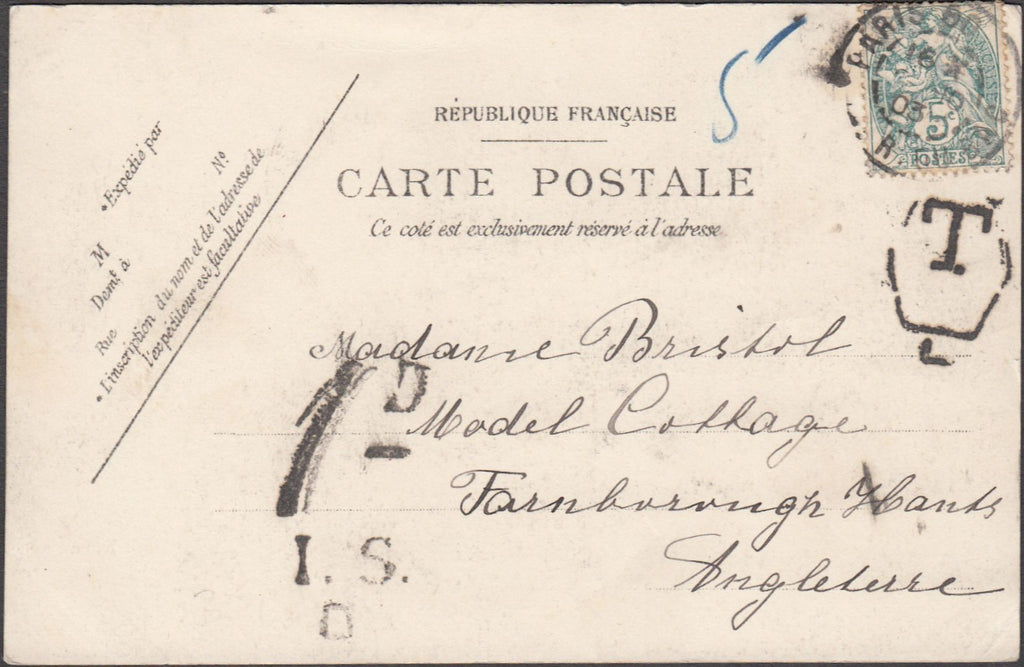 5
PARIS
16
03
5
POSTES
RÉPUBLIQUE FRANÇAISE
CARTE POSTALE
Ce coté est exclusivement réservé à l'adresse
• Expédié par
M
Demt à
Rue Nº
• L'inscription du nom et de l'adresse de
l'expéditeur est facultative
T
Madame Bristol
1 D
Model Cottage
Farnborough Hants
I. S.
Angleterre